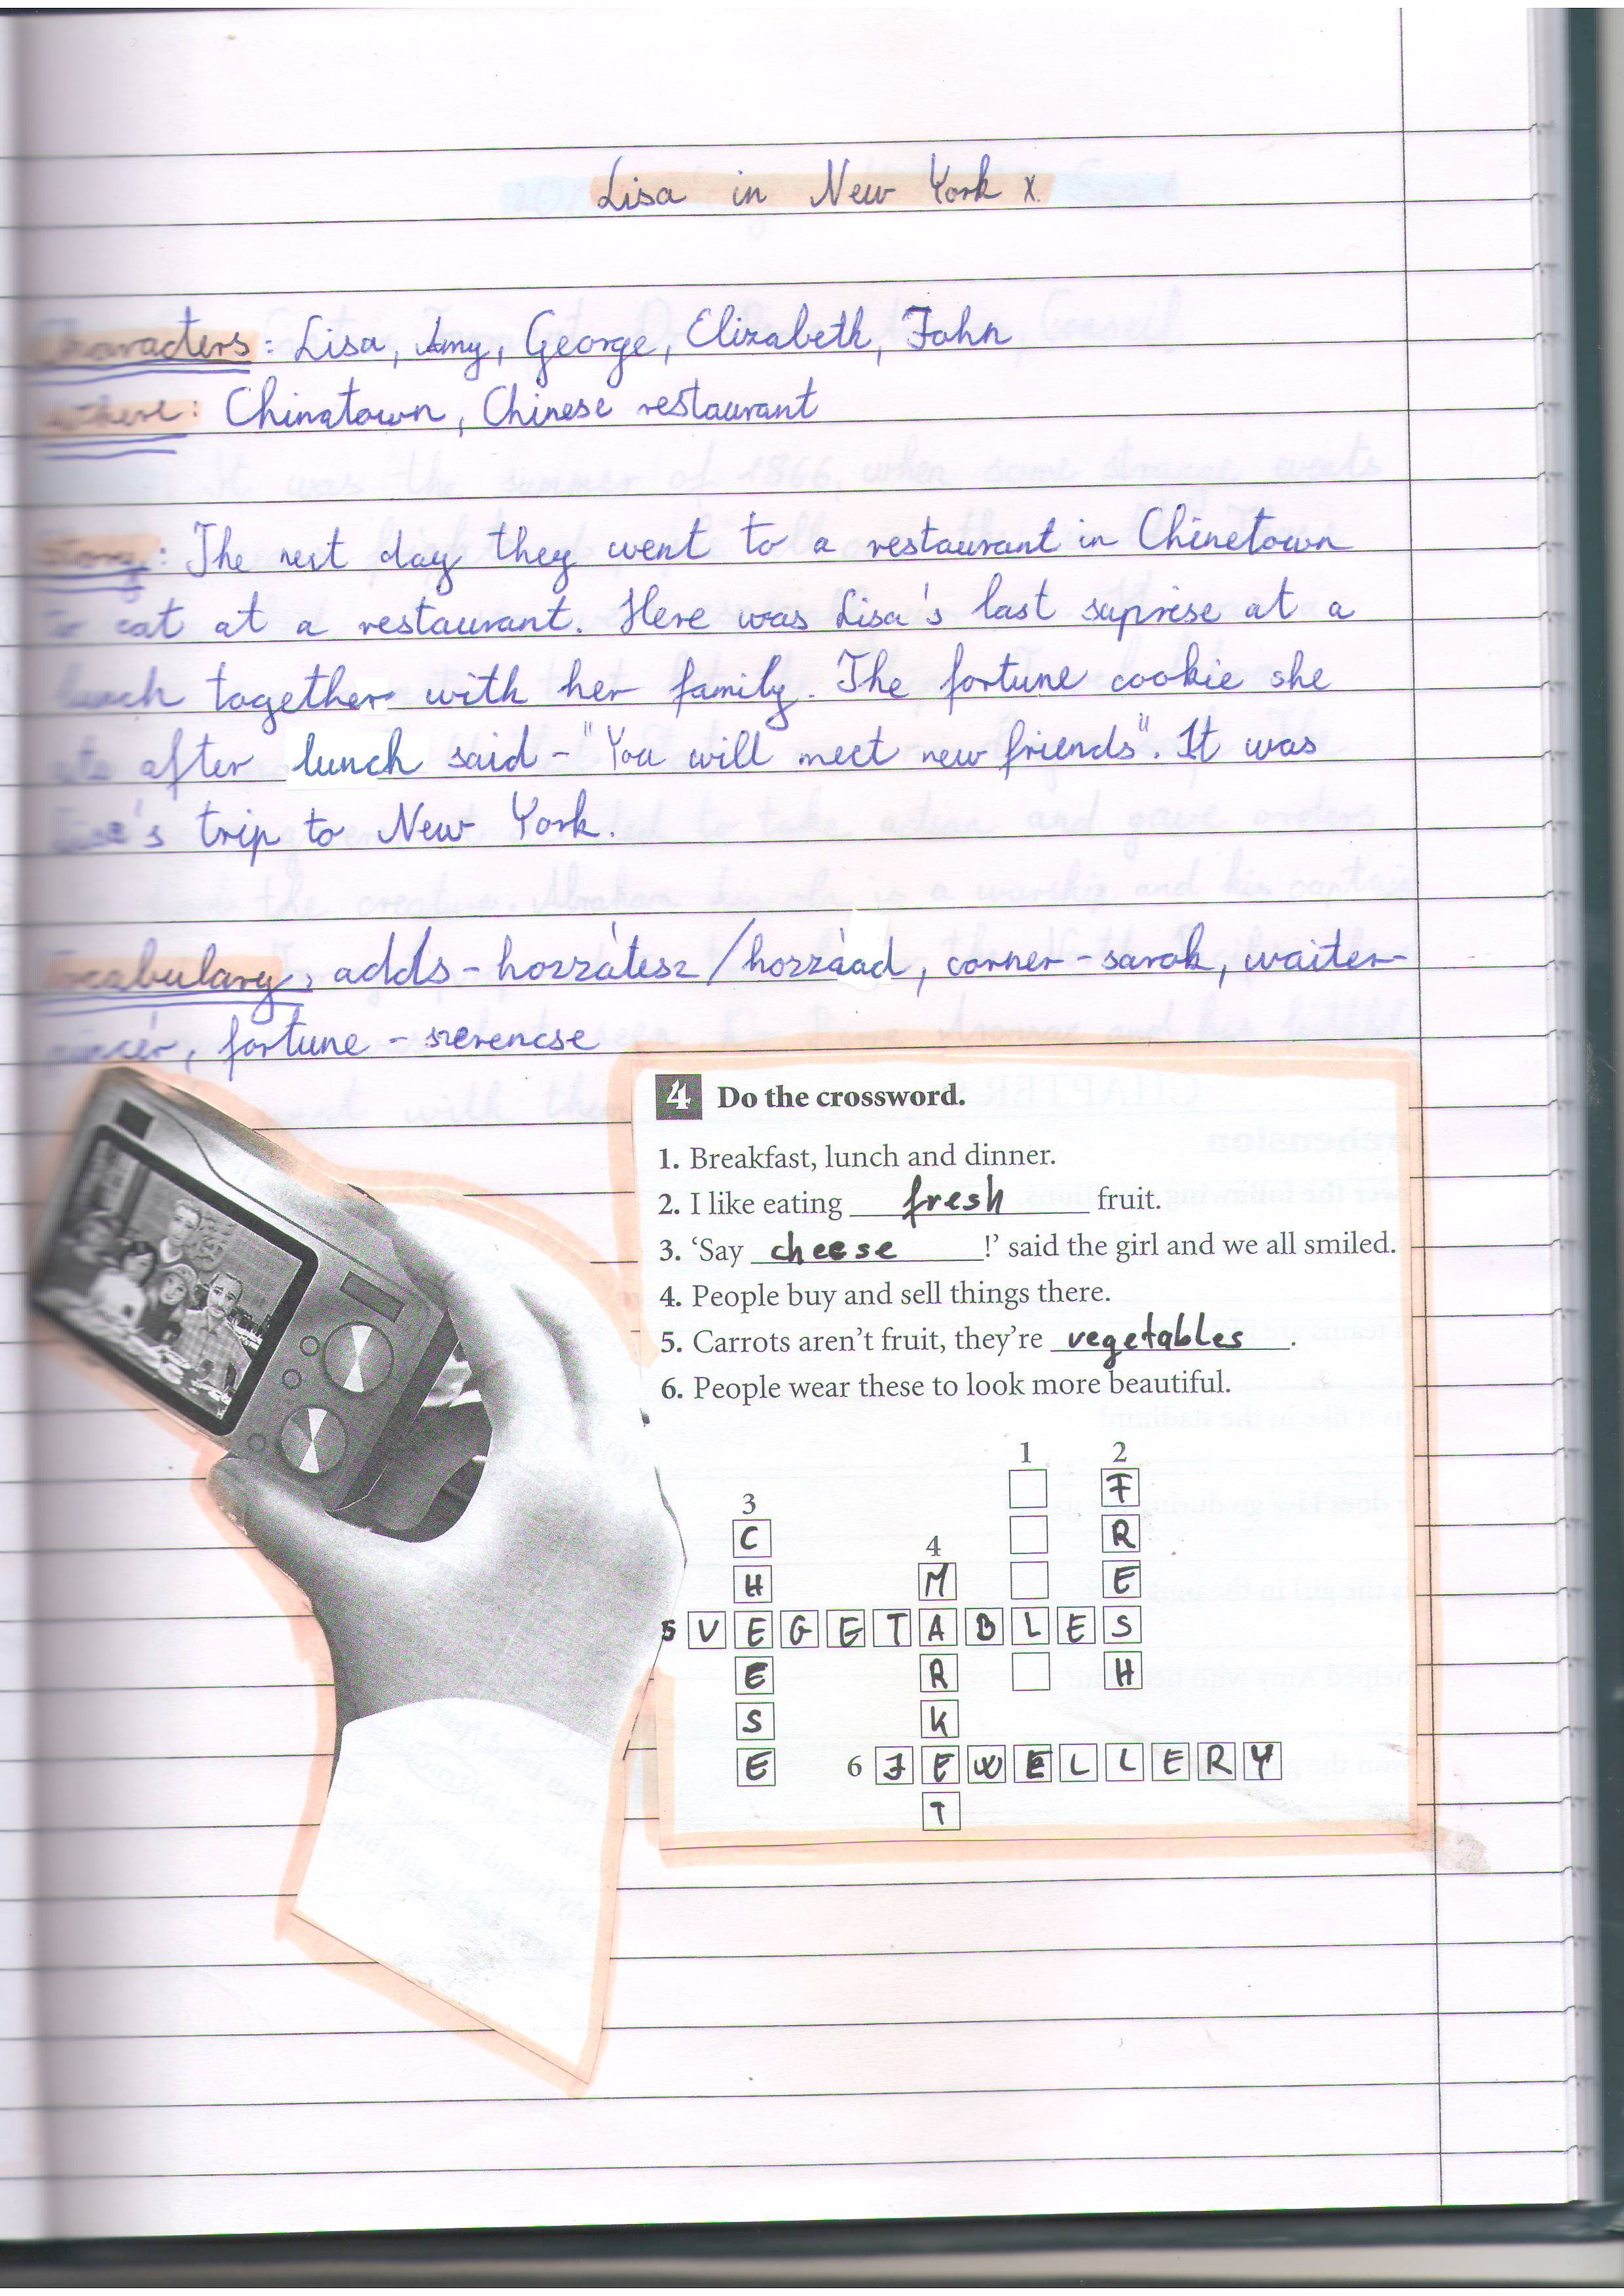 Lisa in New York X.
Characters: Lisa, Amy, George, Elizabeth, John
Where: Chinatown, Chinese restaurant
Story: The next day they went to a restaurant in Chinetown
to eat at a restaurant. Here was Lisa's last saprise at a
lunch together with her family. The fortune cookie she
ate after lunch said - "You will meet new friends". It was
Lisa's trip to New York.
Vocabulary: adds - hozzátesz/hozzáad, corner - sarok, waiter-
pincér, fortune - szerencse
4 Do the crossword.
1. Breakfast, lunch and dinner.
2. I like eating fresh fruit.
3. ‘Say cheese !’ said the girl and we all smiled.
4. People buy and sell things there.
5. Carrots aren’t fruit, they’re vegetables.
6. People wear these to look more beautiful.
1 2
F
3 C R
4 M H E
5 V E G E T A B L E S
E R H
S K
E 6 J E W E L L E R Y
T